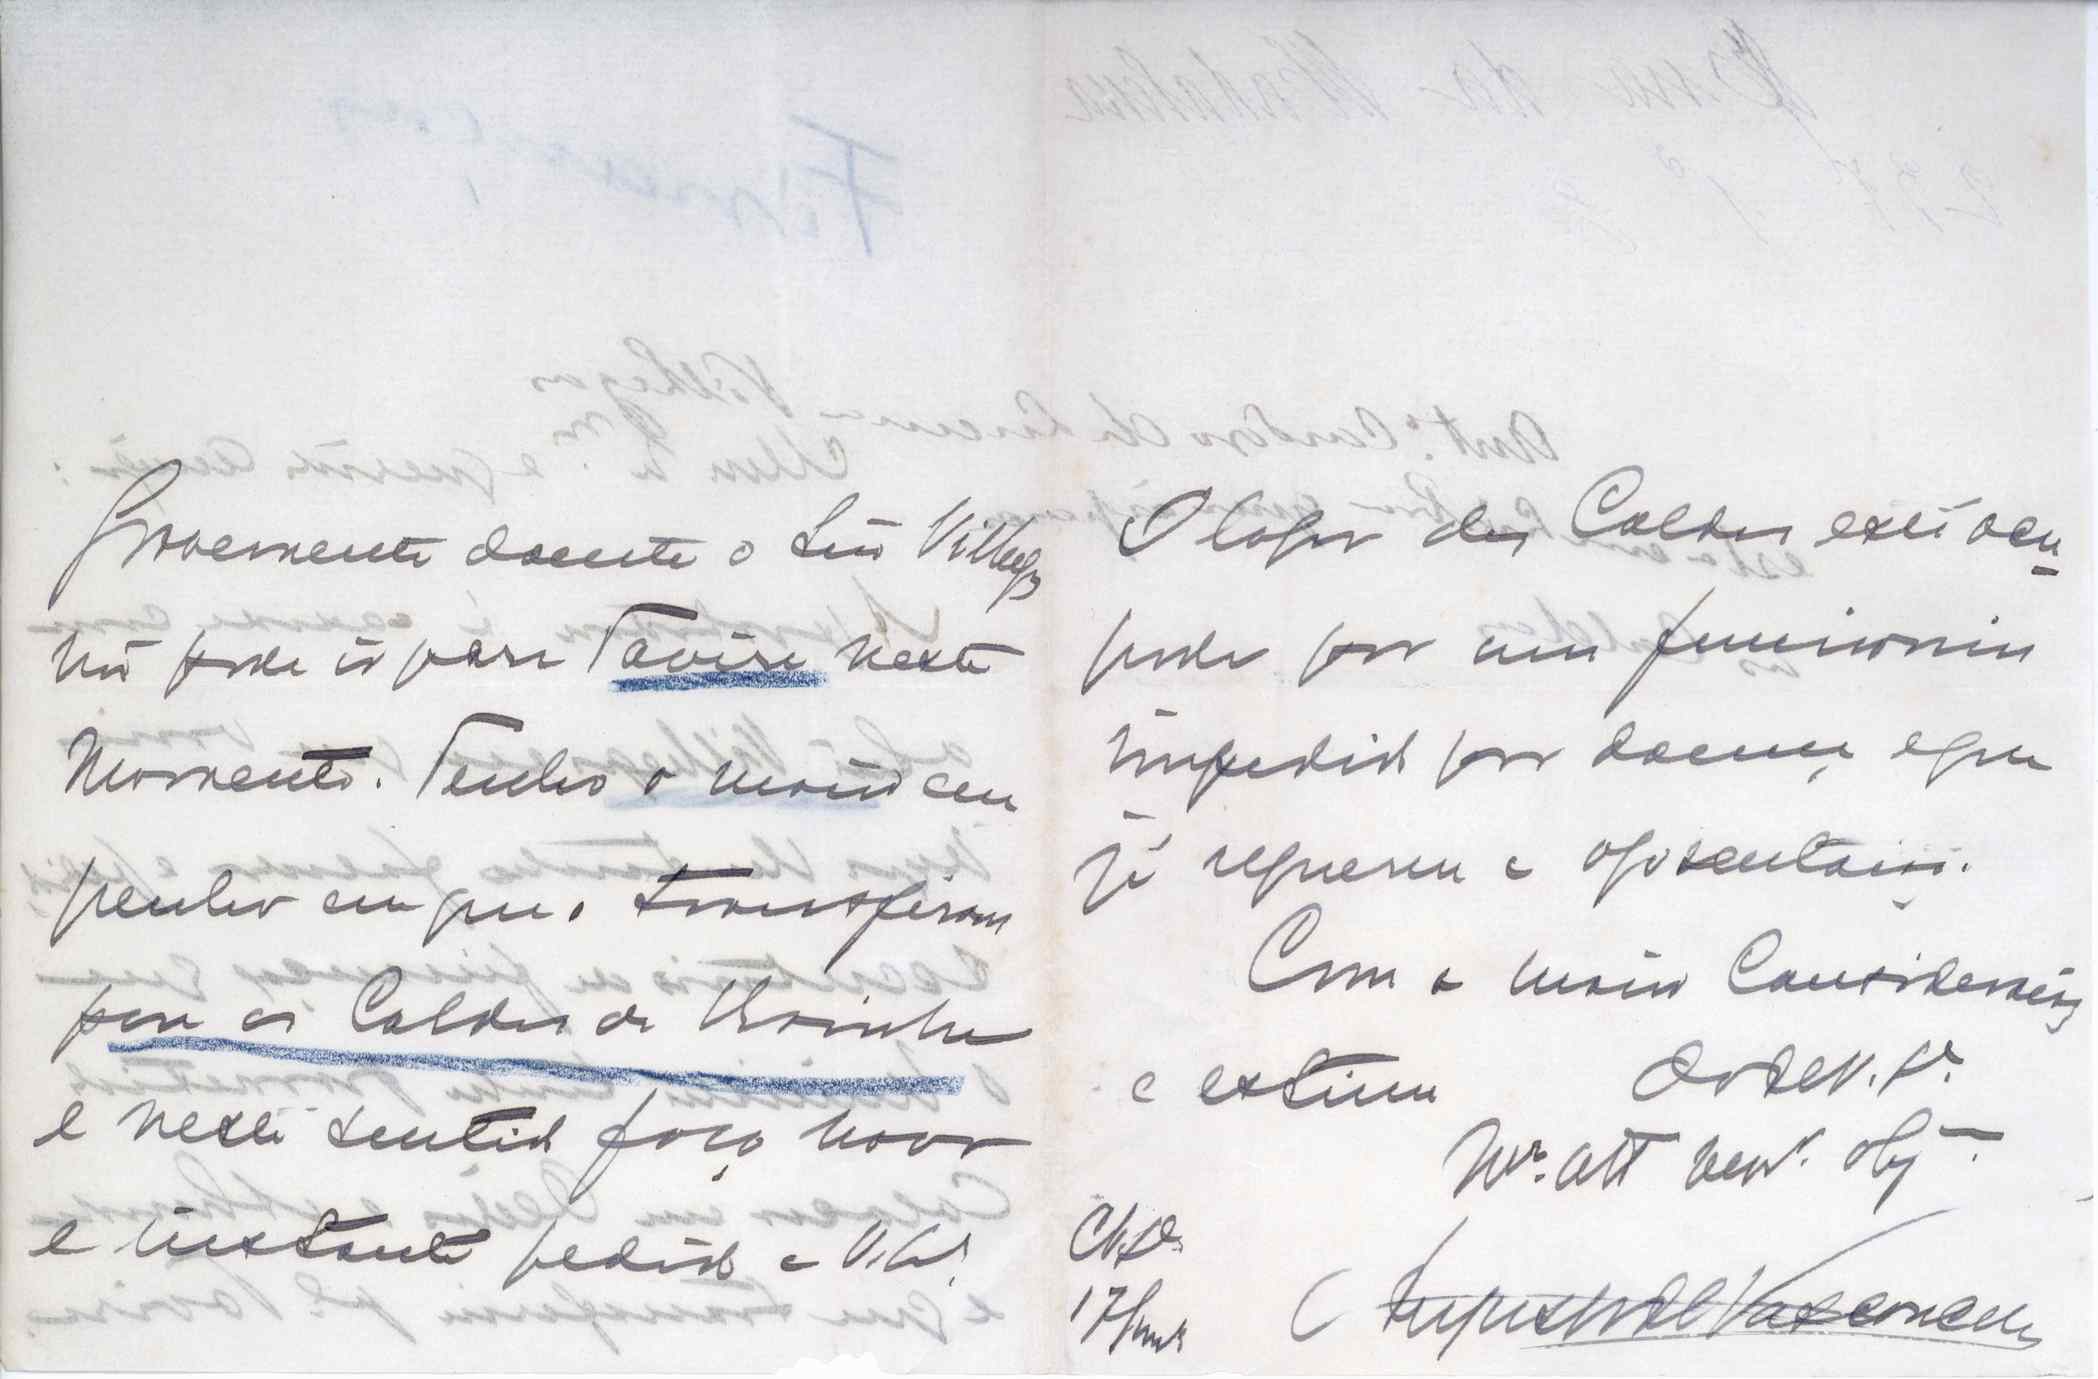 Gravemente doente o Snr Vilhegas
não pode ir para Tavira neste
momento. Tenho o maior em
penho em que o transfiram
para as Caldas da Rainha
e neste sentido faço novo
e instante pedido a V. Exª.
O logar das Caldas está ocu
pado por um funcionario
impedido por doença e que
já requereu a aposentação.
Com a maior Consideração
e estima
De V. Exª.
Mto. att ven. obg
17 Junho
Augusto de Vasconcellos